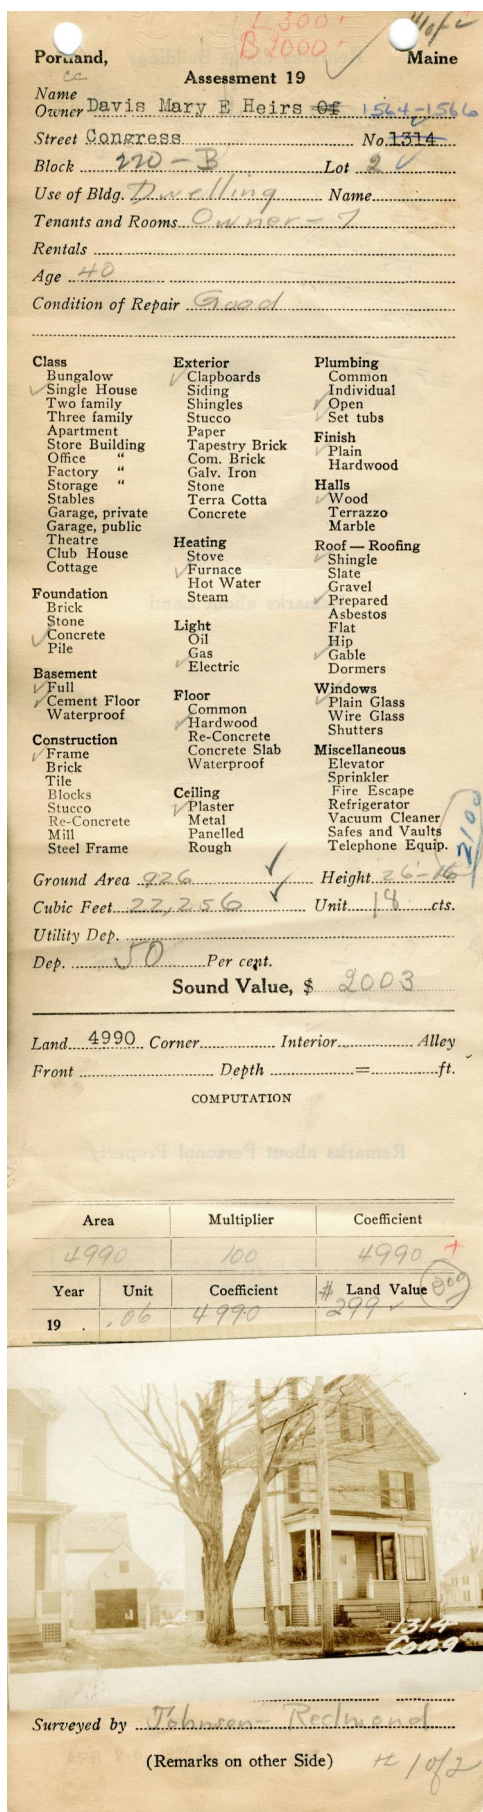 L 300
B 2000
1 of 2
Portland, Maine
cc
Assessment 19
Name
Owner Davis Mary E Heirs Of 1564-1566
Street Congress No. 1314
Block 220-B Lot 2
Use of Bldg. Dwelling Name
Tenants and Rooms Owner-7
Rentals
Age 40
Condition of Repair Good
Class
Bungalow
Single House
Two family
Three family
Apartment
Store Building
Office "
Factory "
Storage "
Stables
Garage, private
Garage, public
Theatre
Club House
Cottage
Foundation
Brick
Stone
Concrete
Pile
Basement
Full
Cement Floor
Waterproof
Construction
Frame
Brick
Tile
Blocks
Stucco
Re-Concrete
Mill
Steel Frame
Exterior
Clapboards
Siding
Shingles
Stucco
Paper
Tapestry Brick
Com. Brick
Galv. Iron
Stone
Terra Cotta
Concrete
Heating
Stove
Furnace
Hot Water
Steam
Light
Oil
Gas
Electric
Floor
Common
Hardwood
Re-Concrete
Concrete Slab
Waterproof
Ceiling
Plaster
Metal
Panelled
Rough
Plumbing
Common
Individual
Open
Set tubs
Finish
Plain
Hardwood
Halls
Wood
Terrazzo
Marble
Roof — Roofing
Shingle
Slate
Gravel
Prepared
Asbestos
Flat
Hip
Gable
Dormers
Windows
Plain Glass
Wire Glass
Shutters
Miscellaneous
Elevator
Sprinkler
Fire Escape
Refrigerator
Vacuum Cleaner
Safes and Vaults
Telephone Equip.
2100
Ground Area 926 Height 26-16
Cubic Feet 22,256 Unit 18 cts.
Utility Dep.
Dep. 50 Per cent.
Sound Value, $ 2003
Land 4990 Corner Interior Alley
Front Depth = ft.
COMPUTATION
Area Multiplier Coefficient
4990 100 4990 +
Year Unit Coefficient # Land Value 300
19 . .06 4990 299
1314
Cong
Surveyed by Johnson-Redmond
(Remarks on other Side)
1 of 2